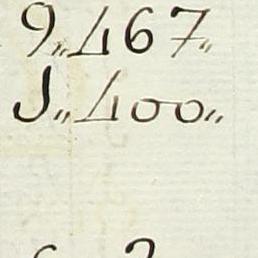 9,,467,,
J,,400,,